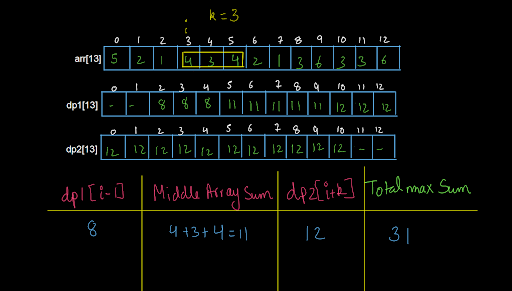 i k = 3
i
0 1 2 3 4 5 6 7 8 9 10 11 12
arr[13] 5 2 1 4 3 4 2 1 3 6 3 3 6
0 1 2 3 4 5 6 7 8 9 10 11 12
dp1[13] - - 8 8 8 11 11 11 11 11 12 12 12
0 1 2 3 4 5 6 7 8 9 10 11 12
dp2[13] 12 12 12 12 12 12 12 12 12 12 12 - -
dp1[i-1] Middle Array Sum dp2[i+k] Total max Sum
8 4+3+4=11 12 31